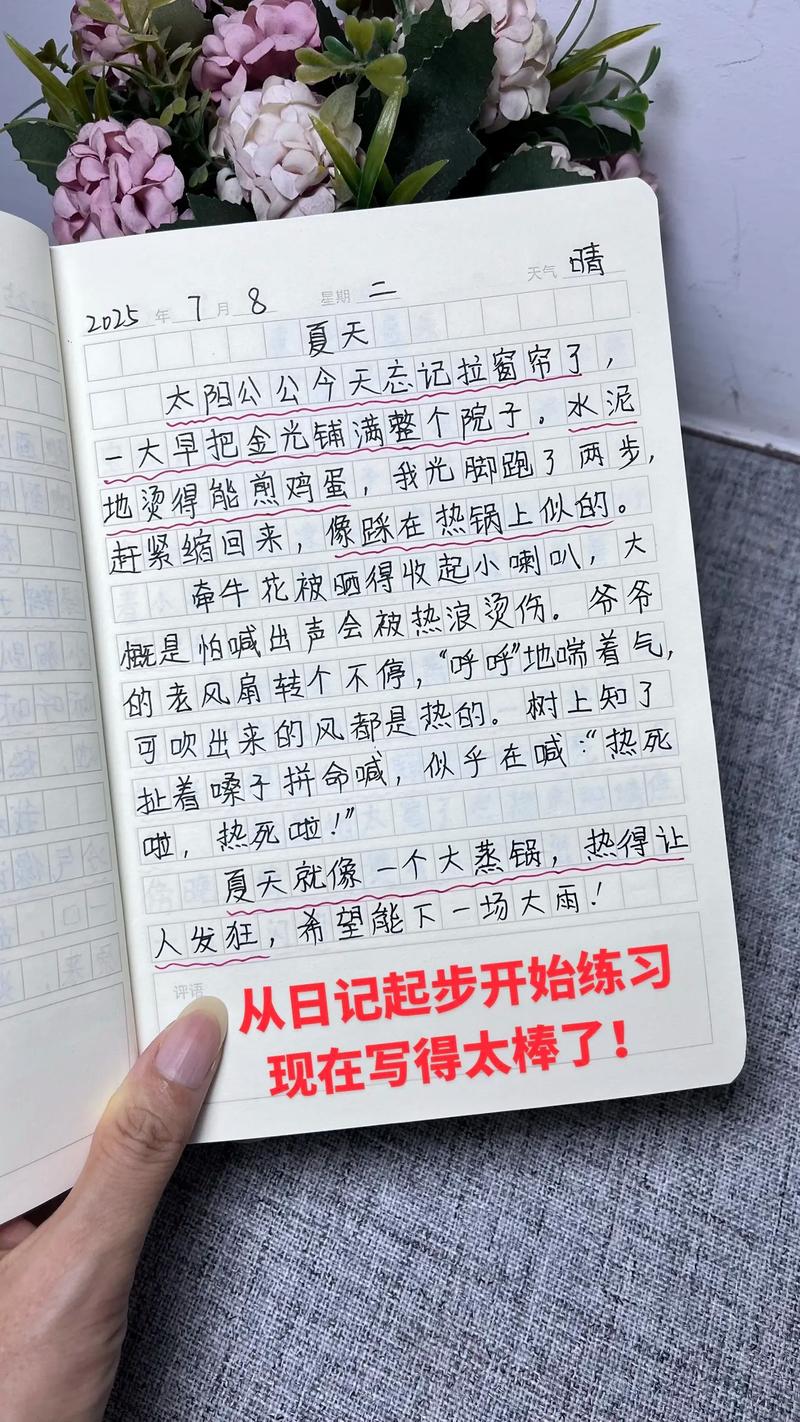 天气 晴
2025 年 7 月 8 星期 二
夏天
太阳公公今天忘记拉窗帘了，
一大早把金光铺满整个院子。水泥
地烫得能煎鸡蛋，我光脚跑了两步，
赶紧缩回来，像踩在热锅上似的。
牵牛花被晒得收起小喇叭，大
概是怕喊出声会被热浪烫伤。爷爷
的老风扇转个不停，“呼呼”地喘着气，
可吹出来的风都是热的。树上知了
扯着嗓子拼命喊，似乎在喊：“热死
啦，热死啦！”
夏天就像一个大蒸锅，热得让
人发狂，希望能下一场大雨！
评语
从日记起步开始练习
现在写得太棒了！